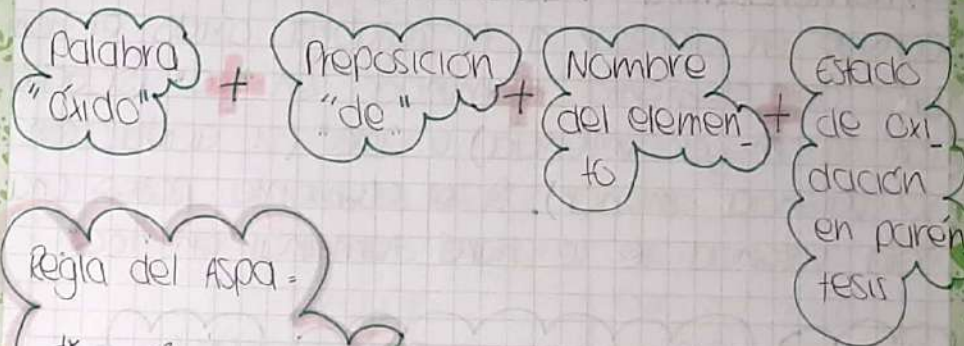 Palabra
"Óxido"
+
Preposición
"de"
+
Nombre
del elemen_
to
+
Estado
de oxi_
dación
en parén
tesis
Regla del Aspa =